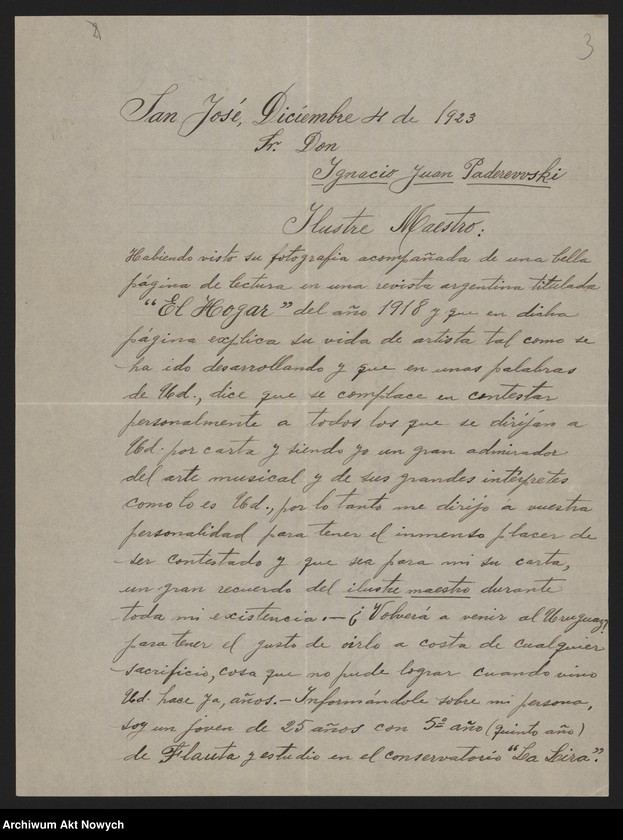 3
San José, Diciembre 4 de 1923
Sr. Don
Ignacio Juan Paderevvski
Ilustre Maestro:
Habiendo visto su fotografia acompañada de una bella
página de lectura en una revista argentina titulada
"El Hogar" del año 1918 y que en dicha
página explica su vida de artista tal como se
ha ido desarrollando y que en unas palabras
de Ud., dice que se complace en contestar
personalmente a todos los que se dirijan a
Ud. por carta y siendo yo un gran admirador
del arte musical y de sus grandes intérpretes
como lo es Ud., por lo tanto me dirijo a vuestra
personalidad para tener el inmenso placer de
ser contestado y que sea para mi su carta,
un gran recuerdo del ilustre maestro durante
toda mi existencia.—¿Volverá a venir al Uruguay?
para tener el gusto de oirlo a costa de cualquier
sacrificio, cosa que no pude lograr cuando vino
Ud. hace ya, años.—Informándole sobre mi persona,
soy un joven de 25 años con 5º año (quinto año)
de Flauta y estudio en el conservatorio "La Leira".
Archiwum Akt Nowych